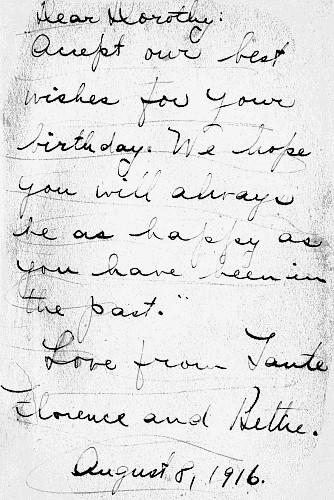 Dear Dorothy:
Accept our best
wishes for your
birthday. We hope
you will always
be as happy as
you have been in
the past."
Love from Tante
Florence and Bettie.
August 8, 1916.